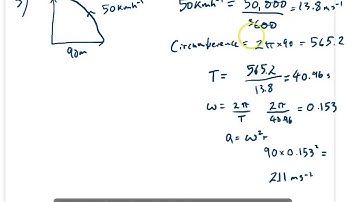 50kmh⁻¹
90m
50kmh⁻¹ = 50,000 / 3600 = 13.8ms⁻¹
Circumference = 2π×90 = 565.2
T = 565.2 / 13.8 = 40.96s
ω = 2π / T 2π / 40.96 = 0.153
a = ω²r
90×0.153² =
2.11ms⁻²